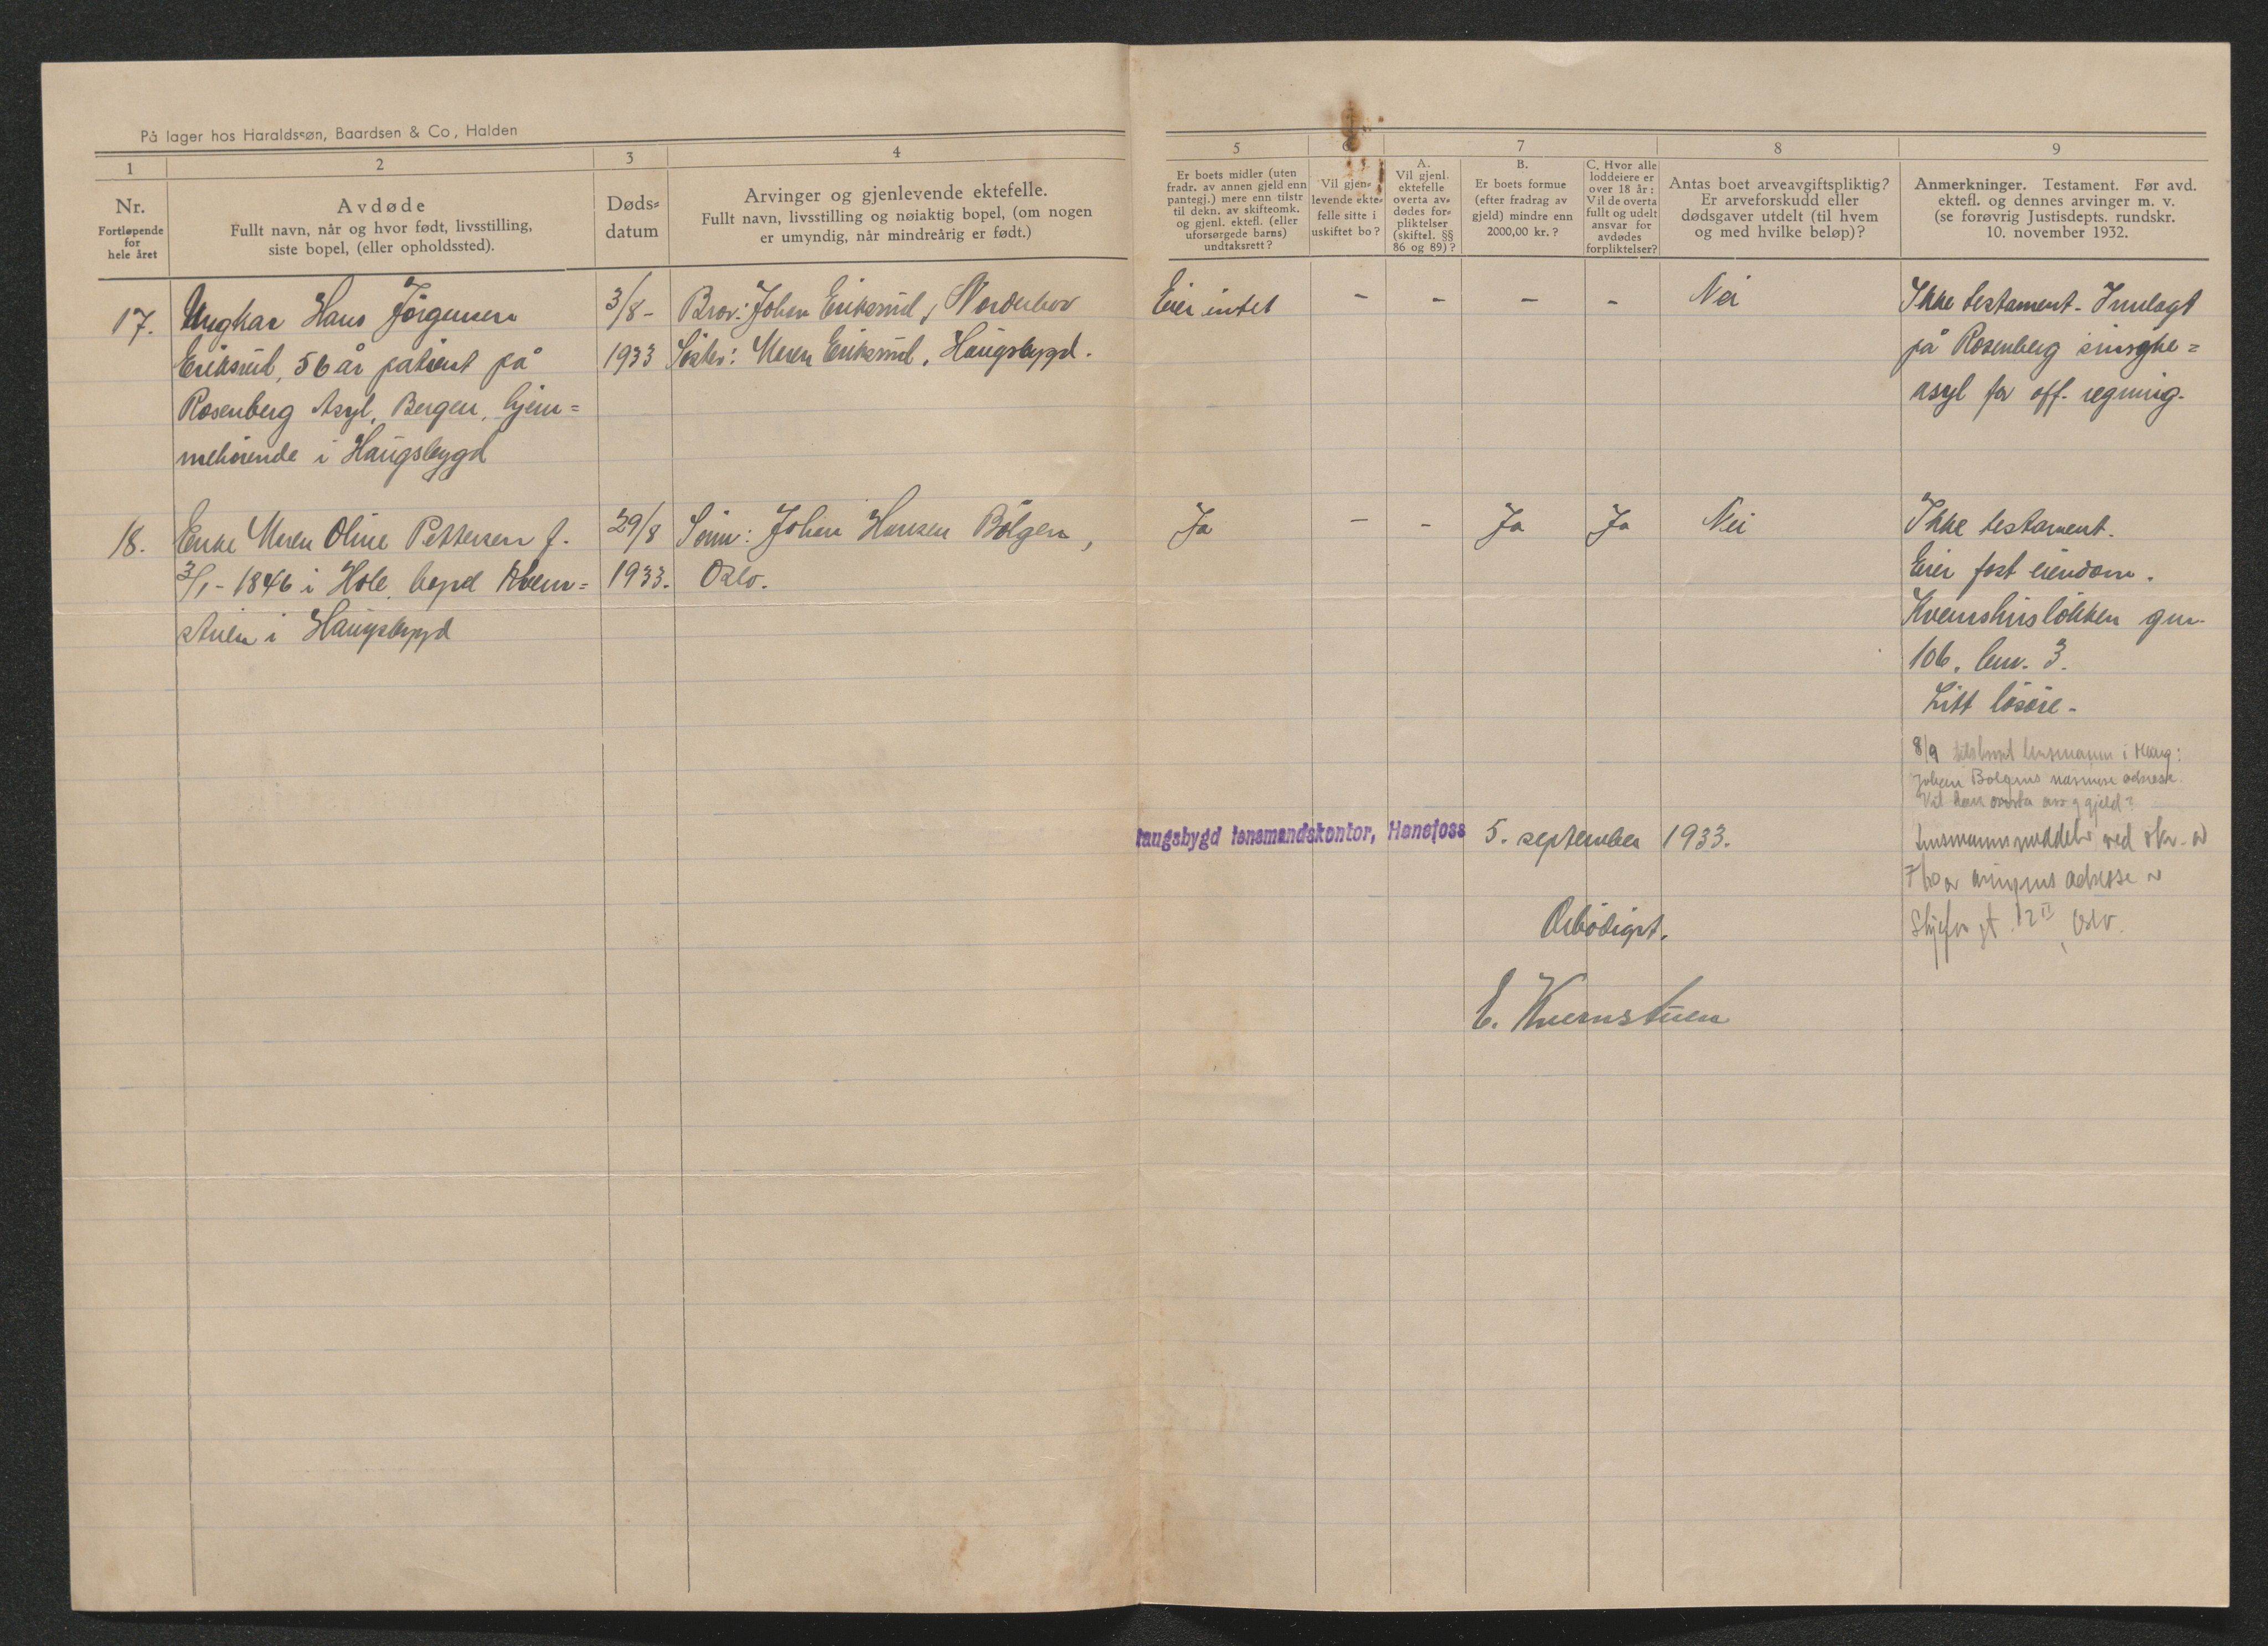 På lager hos Haraldssøn, Baardsen & Co, Halden
1
2
3
4
5
7
8
9
Nr.
Fortløpende
for
hele året
Avdøde
Fullt navn, når og hvor født, livsstilling,
siste bopel, (eller opholdssted).
Døds-
datum
Arvinger og gjenlevende ektefelle.
Fullt navn, livsstilling og nøiaktig bopel, (om nogen
er umyndig, når mindreårig er født.)
Er boets midler (uten
fradr. av annen gjeld enn
pantegj.) mere enn tilstr
til dekn. av skifteomk.
og gjenl. ektefl. (eller
uforsørgede barns)
undtaksrett?
Vil gjen-
levende ekte-
felle sitte i
uskiftet bo?
A.
Vil gjenl.
ektefelle
overta av-
dødes for-
pliktelser
(skiftel. §§
86 og 89)?
B.
Er boets formue
(efter fradrag av
gjeld) mindre enn
2000,00 kr.?
C. Hvor alle
loddeiere er
over 18 år:
Vil de overta
fullt og udelt
ansvar for
avdødes
forpliktelser?
Antas boet arveavgiftspliktig?
Er arveforskudd eller
dødsgaver utdelt (til hvem
og med hvilke beløp)?
Anmerkninger. Testament. Før avd.
ektefl. og dennes arvinger m. v.
(se forøvrig Justisdepts. rundskr.
10. november 1932.
17.
Ungkar Hans Jörgensen
Eriksrud, 56 år patient på
Rosenberg Asyl, Bergen, hjem=
mehörende i Haugsbygd
3/8-
1933
Bror: Johan Eriksrud, Norderhov
Söster: Maren Eriksrud, Haugsbygd.
Eier intet
- - - -
Nei
Ikke testament. Innlagt
på Rosenberg sinsyke=
asyl for off. regning.
18.
Enke Maren Oline Pettersen f.
3/1-1846 i Hole, bopel Kvern=
stuen i Haugsbygd
29/8
1933.
Sönn: Johan Hansen Bölgen,
Oslo.
Ja
- -
Ja
Ja
Nei
Ikke testament.
Eier fast eiendom.
Kvernhuslökken gnr.
106, bnr. 3.
Litt lösöre.
8/9 tilskrevet lensmannen i Haug:
Johan Bolgens nærmere adresse.
Vil han overta arv og gjeld?
Haugsbygd lensmandskontor, Hønefoss
5. september 1933.
Lensmannen meddeler ved skr. av
adresse
gt. 12 II, Oslo.
Ærbödigst.
E. Kvernstuen